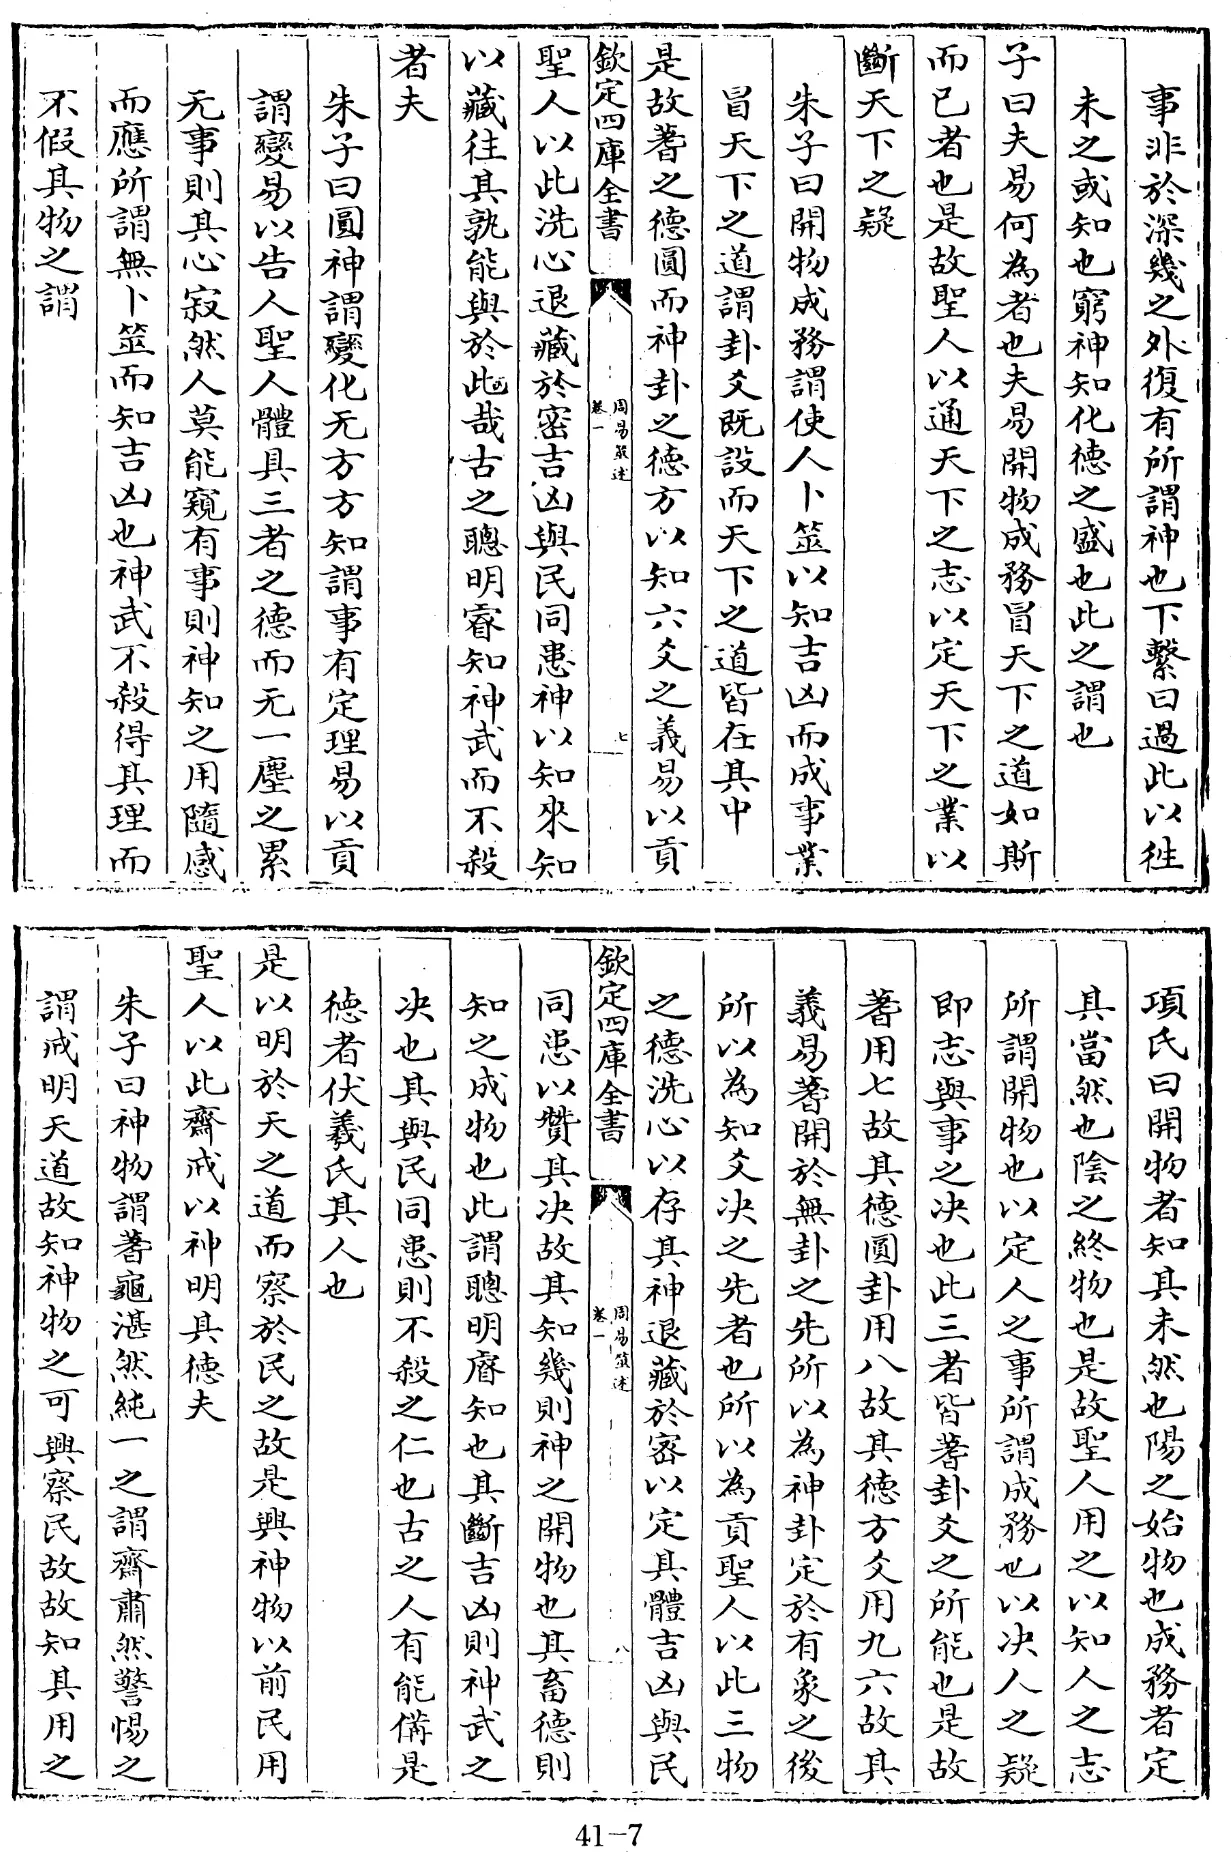 事非於深幾之外復有所謂神也下繫曰過此以徃
未之或知也窮神知化德之盛也此之謂也
子曰夫易何為者也夫易開物成務冒天下之道如斯
而已者也是故聖人以通天下之志以定天下之業以
斷天下之疑
朱子曰開物成務謂使人卜筮以知吉凶而成事業
冒天下之道謂卦爻既設而天下之道皆在其中
是故蓍之德圓而神卦之德方以知六爻之義易以貢
欽定四庫全書
周易䇿述
卷一
七
聖人以此洗心退藏於密吉凶與民同患神以知來知
以藏往其孰能與於此哉古之聰明睿知神武而不殺
者夫
朱子曰圓神謂變化无方方知謂事有定理易以貢
謂變易以告人聖人體具三者之德而无一塵之累
无事則其心寂然人莫能窺有事則神知之用隨感
而應所謂無卜筮而知吉凶也神武不殺得其理而
不假其物之謂
項氏曰開物者知其未然也陽之始物也成務者定
其當然也陰之終物也是故聖人用之以知人之志
所謂開物也以定人之事所謂成務也以决人之疑
即志與事之决也此三者皆蓍卦爻之所能也是故
蓍用七故其德圓卦用八故其德方爻用九六故其
義易蓍開於無卦之先所以為神卦定於有象之後
所以為知爻决之先者也所以為貢聖人以此三物
之德洗心以存其神退藏於密以定其體吉凶與民
欽定四庫全書
周易䇿述
卷一
八
同患以贊其决故其知幾則神之開物也其畜德則
知之成物也此謂聰明睿知也其斷吉凶則神武之
决也其與民同患則不殺之仁也古之人有能備是
德者伏羲氏其人也
是以明於天之道而察於民之故是興神物以前民用
聖人以此齋戒以神明其德夫
朱子曰神物謂蓍龜湛然純一之謂齋肅然警惕之
謂戒明天道故知神物之可興察民故故知其用之
41-7